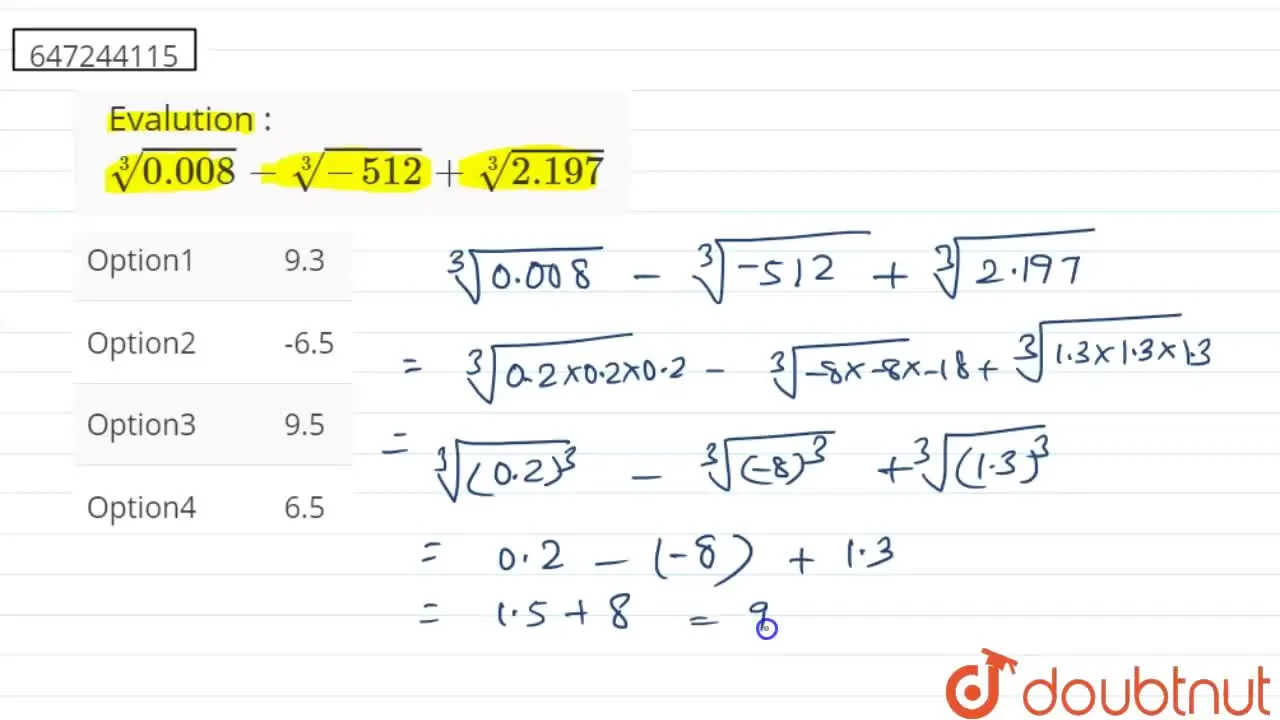 647244115
Evalution :
∛0.008 − ∛−512 + ∛2.197
Option1 9.3
Option2 -6.5
Option3 9.5
Option4 6.5
∛0.008 − ∛−512 + ∛2.197
= ∛0.2×0.2×0.2 − ∛−8×−8×−18 + ∛1.3×1.3×1.3
= ∛(0.2)³ − ∛(−8)³ + ∛(1.3)³
= 0.2 − (−8) + 1.3
= 1.5 + 8 = 9
doubtnut